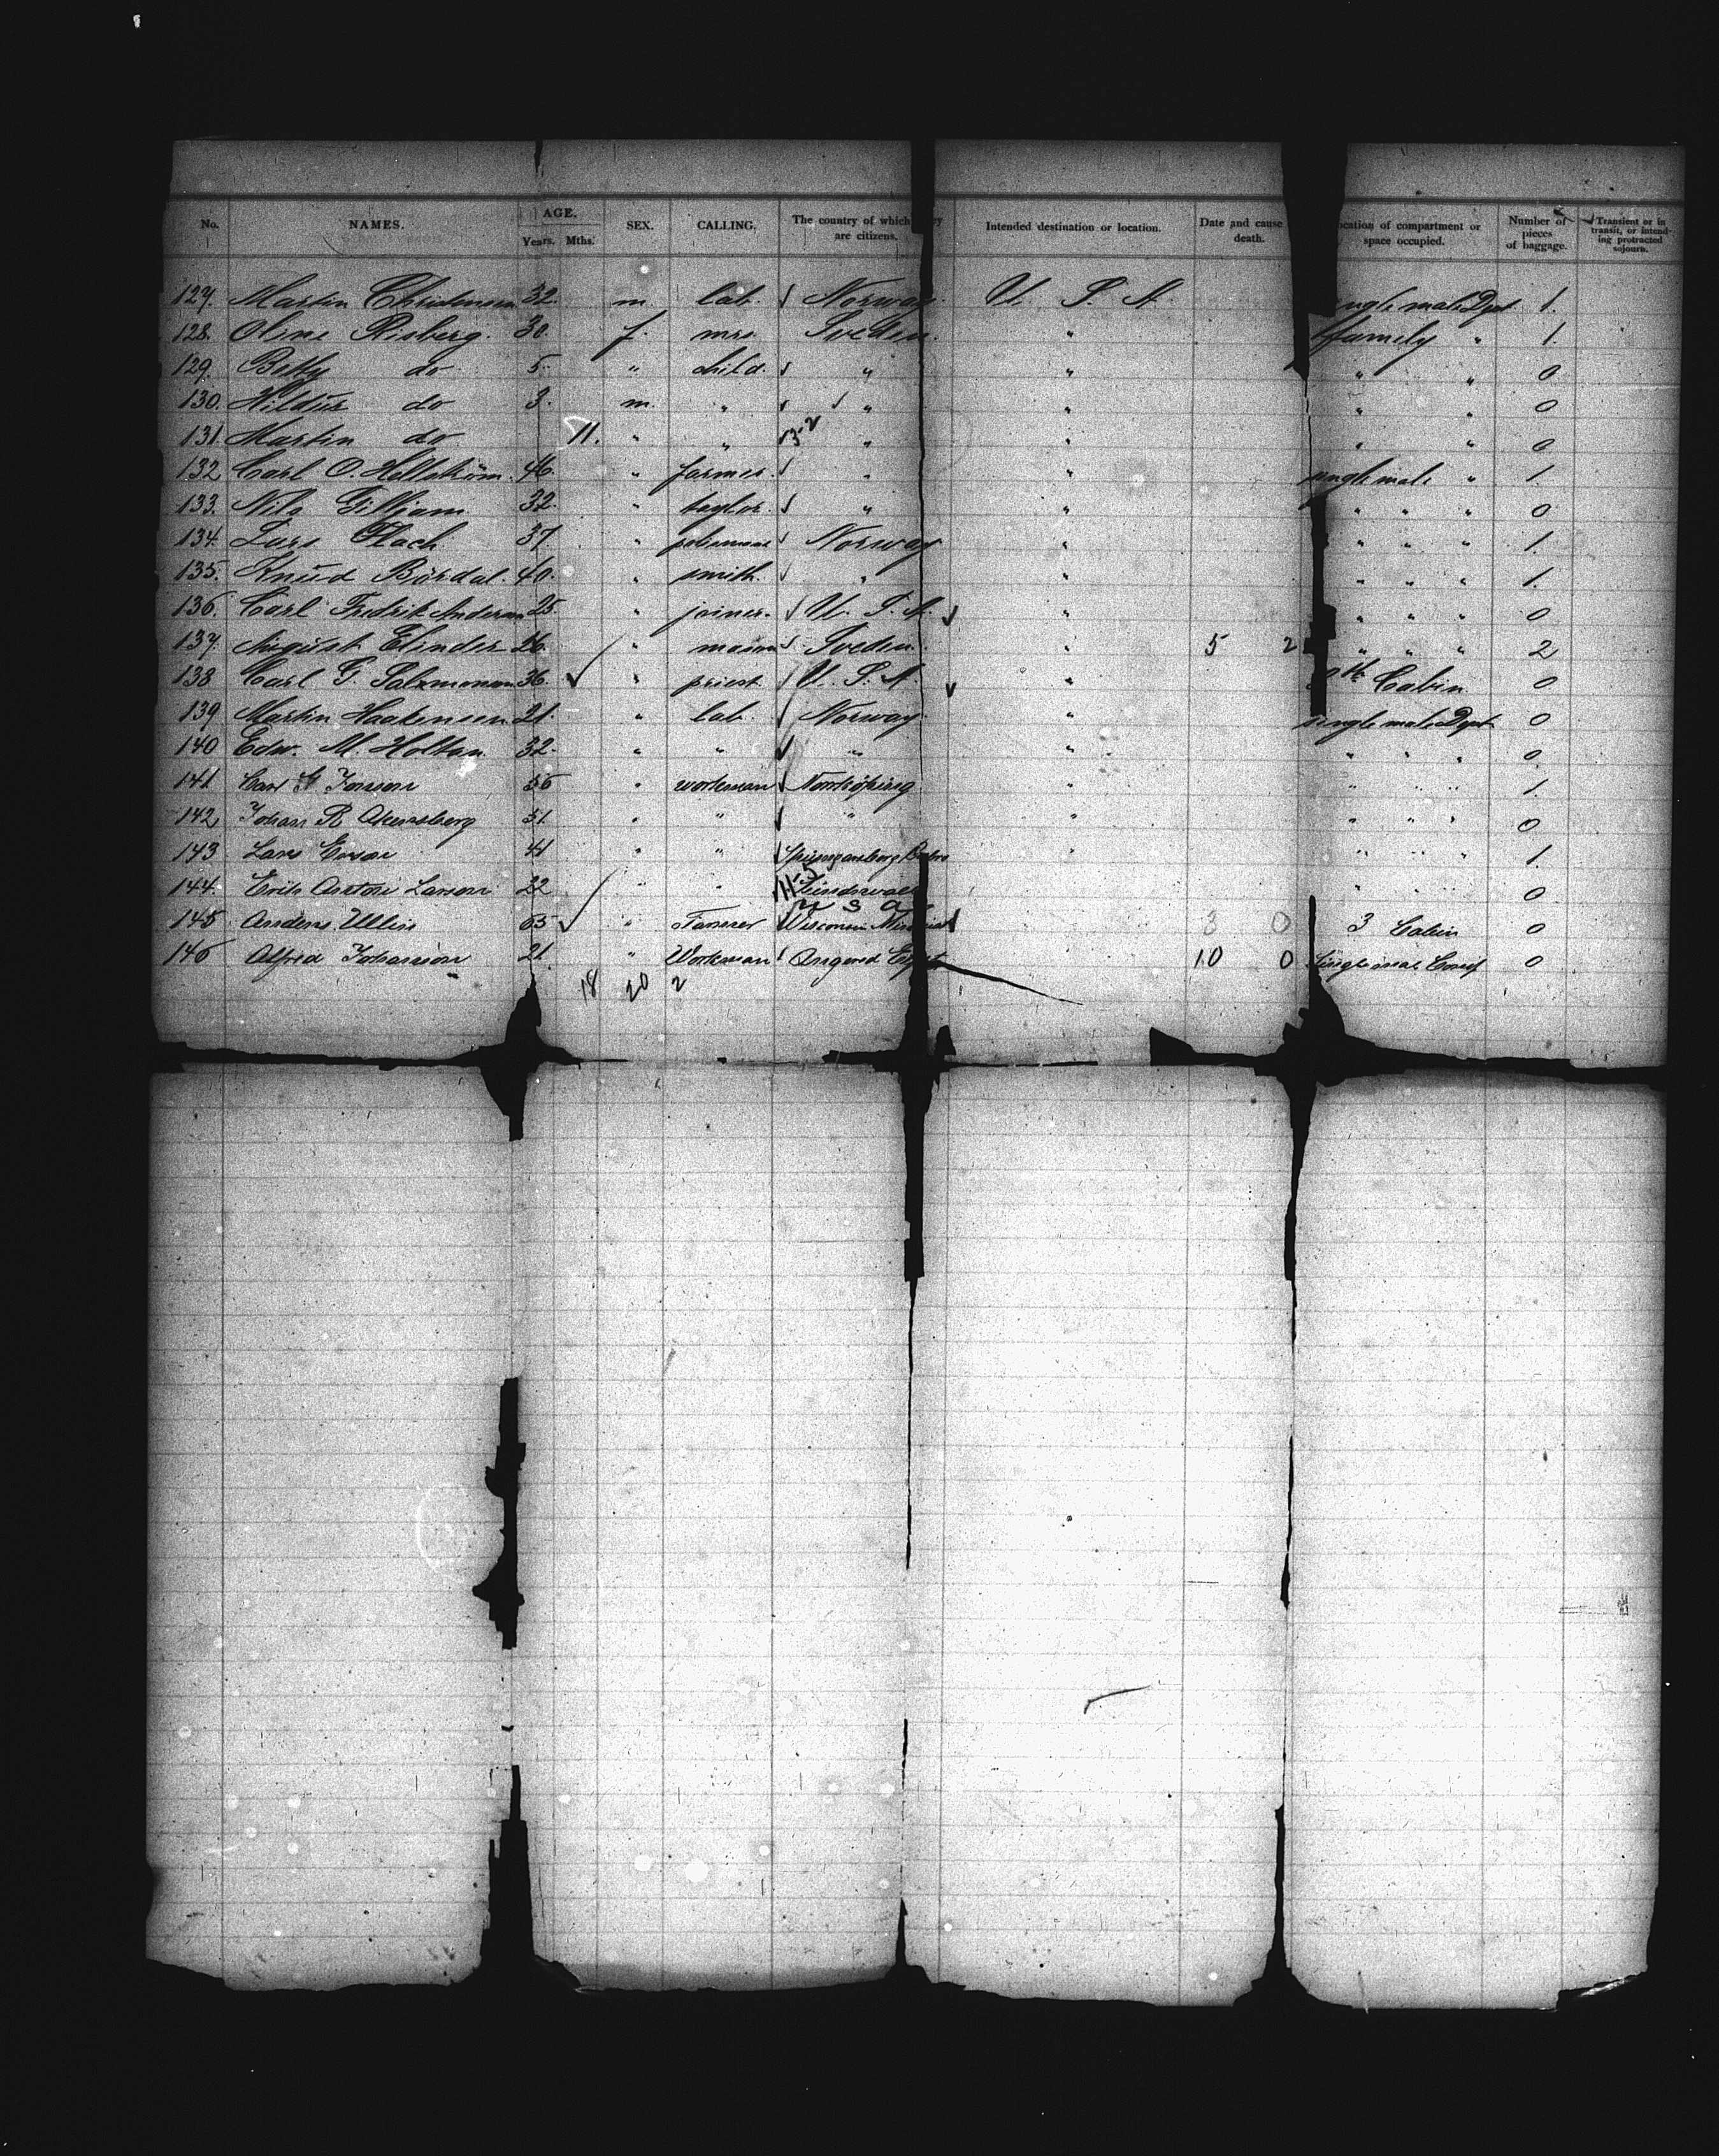 No. NAMES. AGE. Years. Mths. SEX. CALLING. The country of which are citizens. Intended destination or location. Date and cause death. ocation of compartment or space occupied. Number of pieces of baggage. Transient or in transit, or intend-ing protracted sojourn.
127. Martin 32. m. lab. Norway. U. S. A. ngle male Dept. 1.
128. Oline Risberg. 30. f. mrs. Sweden. " family " 1.
129. Betty do 5. " child. " " " " 0
130. Hildur do 3. m. " " " " " 0
131. Martin do 11. " " 3-2 " " " " 0
132 Carl O. Hellström. 46. " farmer. " " single male " 1.
133. Nils Gilljam 32. " taylor. " " " " " 0
134. Lars Flach 37. " Norway " " " " 1.
135. Knud Bärdal. 40. " smith. " " " " " 1.
136. Carl Fredrik 25. " joiner. U. S. A. " " " " 0
137. August Elinder 26. " mason Sweden. " 5 2 " " " 2
138 Carl G. 36. " priest. U. S. A. " Cabin 0
139 Martin Haakensen 21. " lab. Norway. " single male Dept. 0
140 Edw. M. Holtan 32. " " " " " " " 0
141 Carl G Jonson 56 " workman Norrköping " " " 1.
142 Johan R 51. " " " " " " " 0
143 Lars 41 " " " " " " 1.
144. Erik Anton Larson 22 " " 11-5 " " " 0
U S A
145 Anders Ullin 65 " Farmer Wisconsin 3 0 3 Cabin 0
146 Alfred Johanson 21. " Workman 10 0 Single male 0
18 20 2